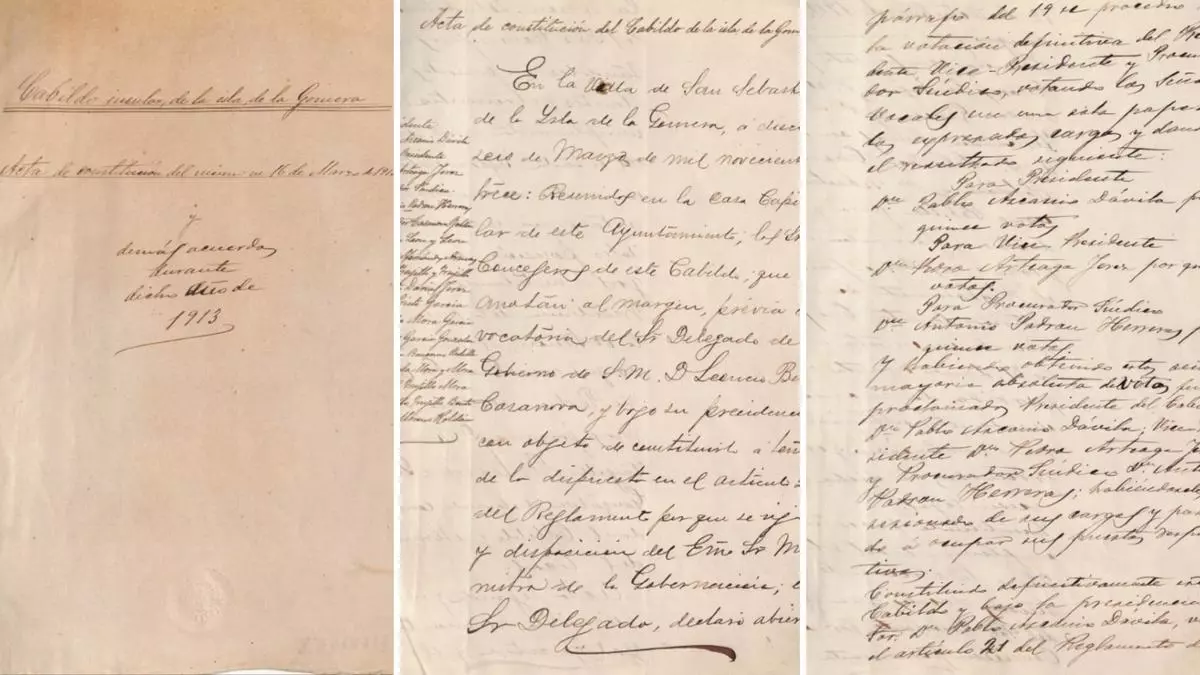 Cabildo insular de la isla de la Gomera
Acta de constitución del mismo en 16 de Marzo de 191
y
demás acuerdos
durante
dicho año de
1913
Acta de constitución del Cabildo de la isla de la Gome
En la Villa de San Sebast
de la Ysla de la Gomera, á dieci
seis de Marzo de mil novecient
trece: Reunidos en la casa Capi
lar de este Ayuntamiento, los Sr
Consejeros de este Cabildo, que
anotan al margen, previa
vocatoria del Sr Delegado de
Gobierno de S. M. D Leoncio Be
Casanova, y bajo su presidenc
con objeto de constituirlo á ten
de lo dispuesto en el articulo
del Reglamento por que se rij
y disposicion del Emo Sr M
nistro de la Gobernacion;
Sr Delegado, declaró abier
idente
Ascanio Dávila
residente
Arteaga Jerez
Síndico
Padron Herrera
Leon y Leon
Trujillo y Trujillo
Darias Jerez
García
Mora Garcia
Garcia Gonzalez
Mora y Mora
Trujillo Mora
Trujillo
Roldán
párrafo del 19 se procedió
la votación definitiva del Pre
dente Vice-Presidente y Procu
dor Síndico, votando los Seño
Vocales en una sola papel
los expresados cargos y dand
el resultado siguiente:
Para Presidente
Dn Pablo Ascanio Dávila p
quince votos
Para Vice Presidente
Dn Pedro Arteaga Jerez por qu
votos.
Para Procurador Síndico
Dn Antonio Padron Herrera p
quince votos
Y habiendo obtenido estos seño
mayoria absoluta de votos fu
proclamados Presidente del Cabi
Dn Pablo Ascanio Dávila; Vice
sidente Dn Pedro Arteaga J
y Procurador Síndico Dn Ant
Padron Herrera; habiendose
sesionado de sus cargos y pa
do á ocupar sus puestos respe
tivos.
Constituido definitivamente es
Cabildo y bajo la presidencia
Sor. Dn Pablo Ascanio Dávila, v
el articulo 21 del Reglamento d